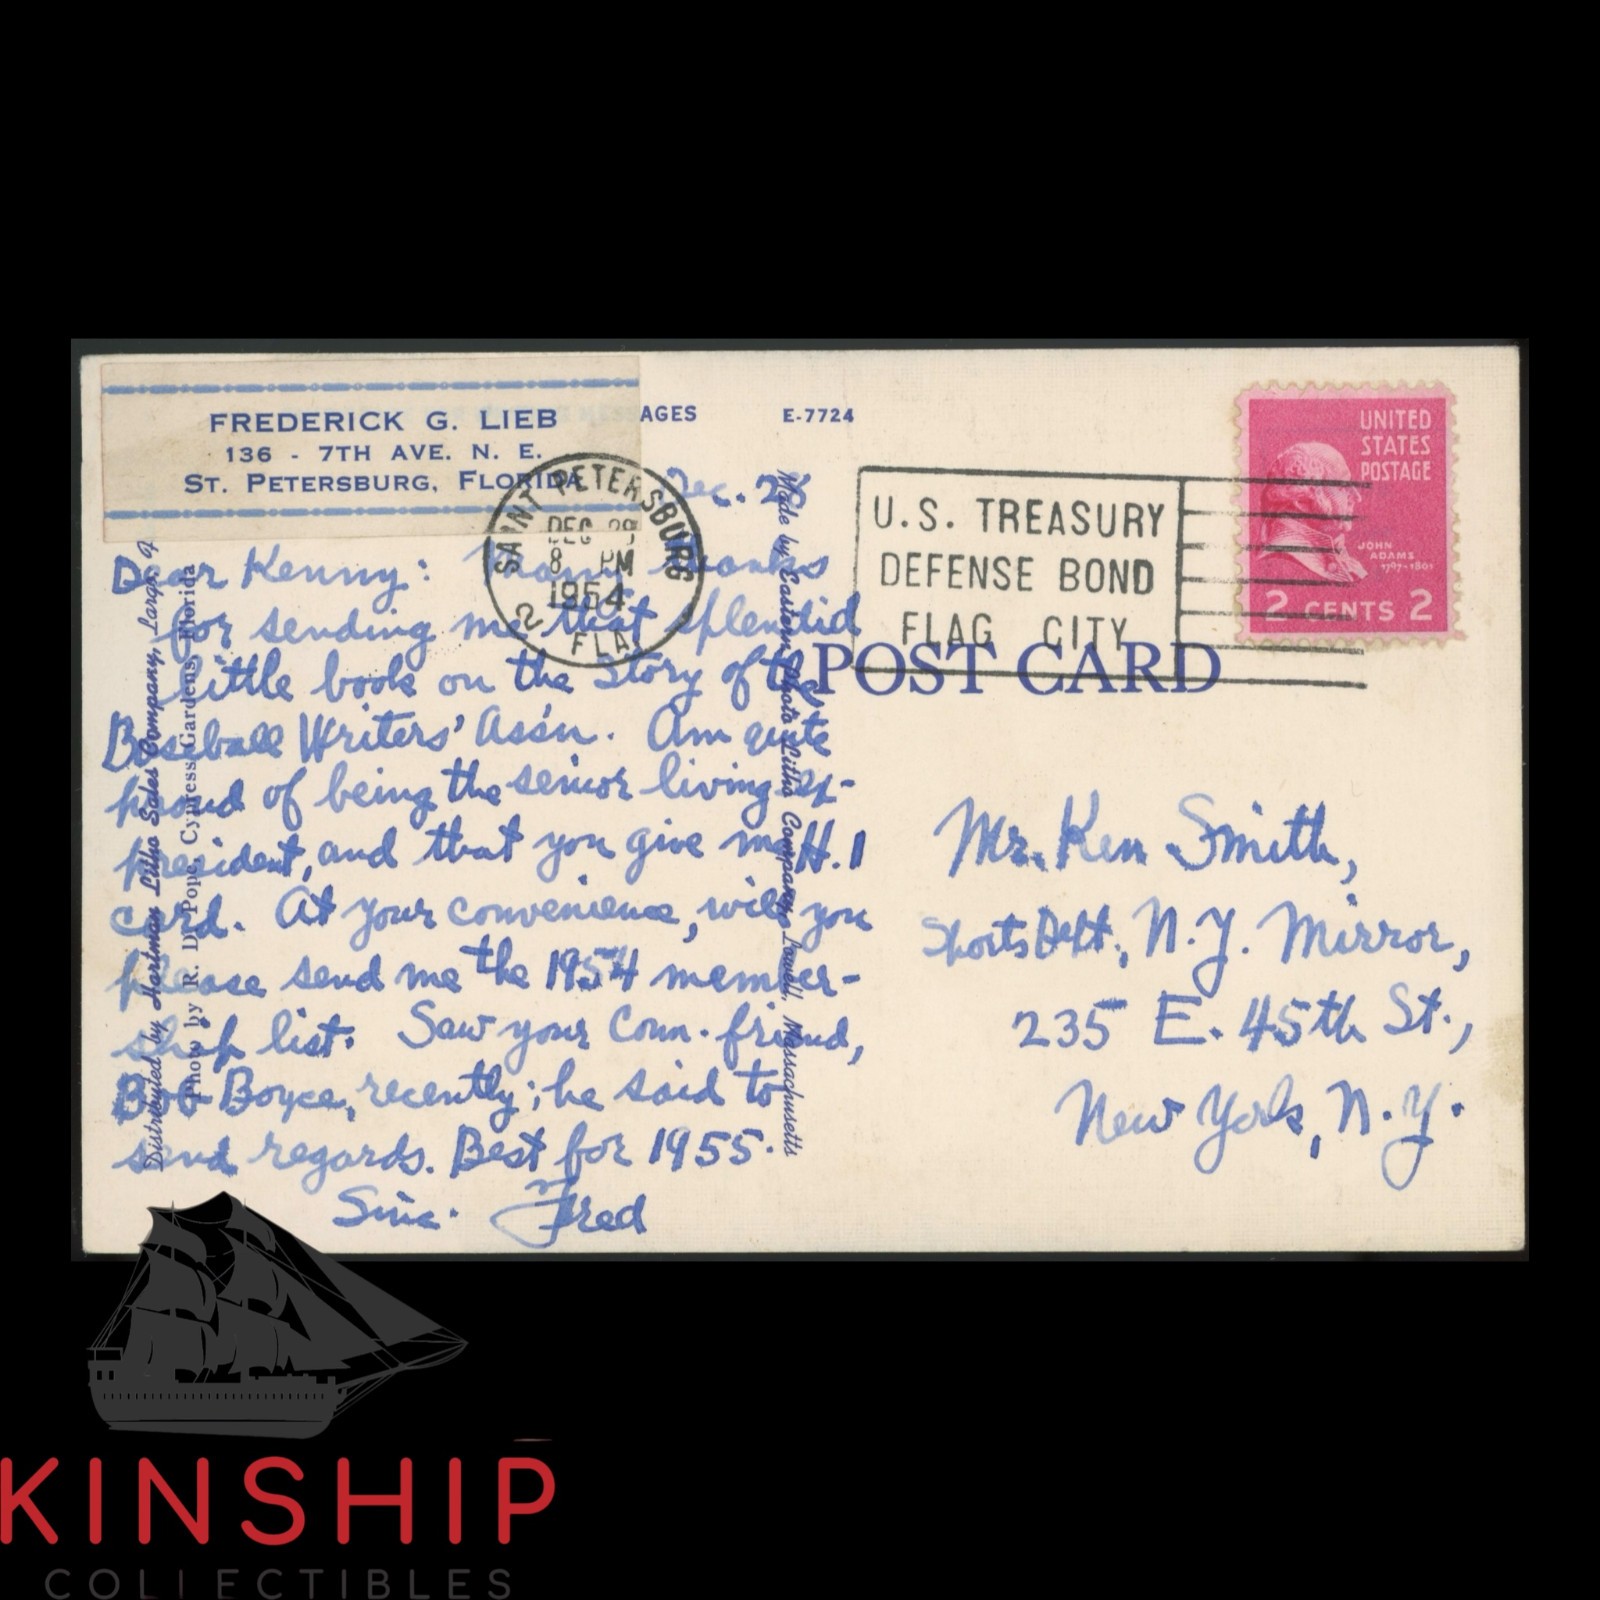 FREDERICK G. LIEB
136 - 7TH AVE. N. E.
ST. PETERSBURG, FLORIDA
AGES E-7724
SAINT PETERSBURG
DEC
8 PM
1954
2 FLA
U.S. TREASURY
DEFENSE BOND
FLAG CITY
UNITED
STATES
POSTAGE
JOHN
ADAMS
1797-1801
2 CENTS 2
POST CARD
Dec. 28
Dear Kenny: Many thanks
for sending me that splendid
little book on the Story of the
Baseball Writers' Ass'n. Am quite
proud of being the senior living ex-
president, and that you give me H. 1
card. At your convenience, will you
please send me the 1954 member-
ship list. Saw your Conn. friend,
Bob Boyce, recently; he said to
send regards. Best for 1955.
Sinc. Fred
Mr. Ken Smith,
Sports Dept., N.Y. Mirror,
235 E. 45th St.,
New York, N.Y.
Distributed by Hartman Litho Sales Company, Largo,
Photo by R. D. Pope, Cypress Gardens, Florida
Made by Eastern Photo Litho Company, Lowell, Massachusetts
KINSHIP
COLLECTIBLES